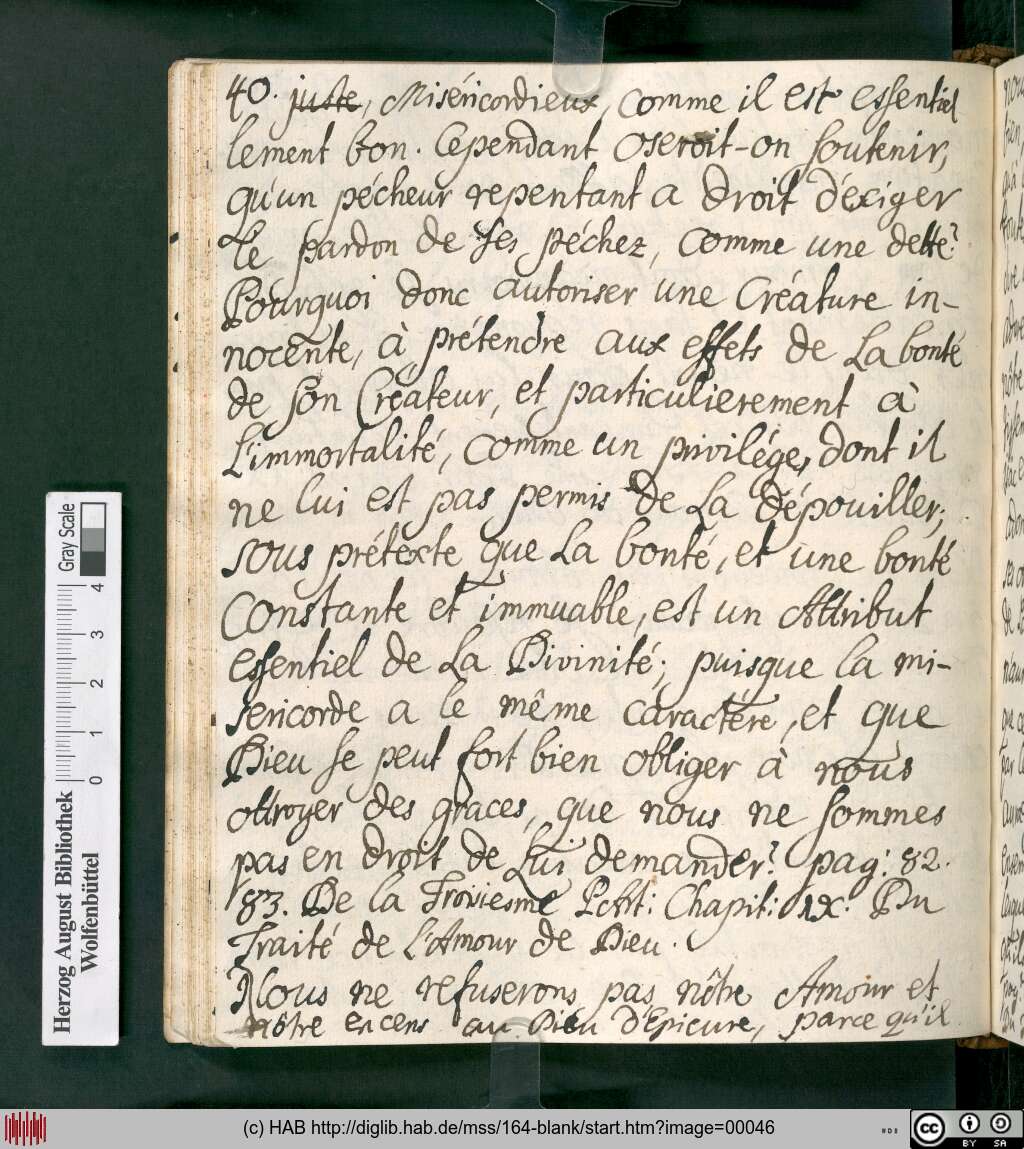 40. juste, Miséricordieux, comme il est essentiel
lement bon. Cependant oseroit-on soutenir,
qu'un pécheur repentant a droit d'éxiger
Le pardon de ses péchez, comme une dette?
Pourquoi donc autoriser une Créature in-
nocente, à prétendre aux effets de La bonté
de son Créateur, et particulierement à
L'immortalité, comme un privilége, dont il
ne lui est pas permis de La dépouiller;
sous prétexte que La bonté, et une bonté
Constante et immuable, est un Attribut
essentiel de La Divinité; puisque la mi-
sericorde a le même caractére, et que
Dieu se peut fort bien obliger à nous
ottroyer des graces, que nous ne sommes
pas en droit de Lui demander? pag: 82.
83. De la Troiesme Part: Chapit: IX. Du
Traité de L'Amour de Dieu.
Nous ne refuserons pas nôtre Amour et
nôtre encens au Dieu d'Epicure, parce qu'il
Gray Scale
4 3 2 1 0
Herzog August Bibliothek
Wolfenbüttel
(c) HAB http://diglib.hab.de/mss/164-blank/start.htm?image=00046
cc BY SA